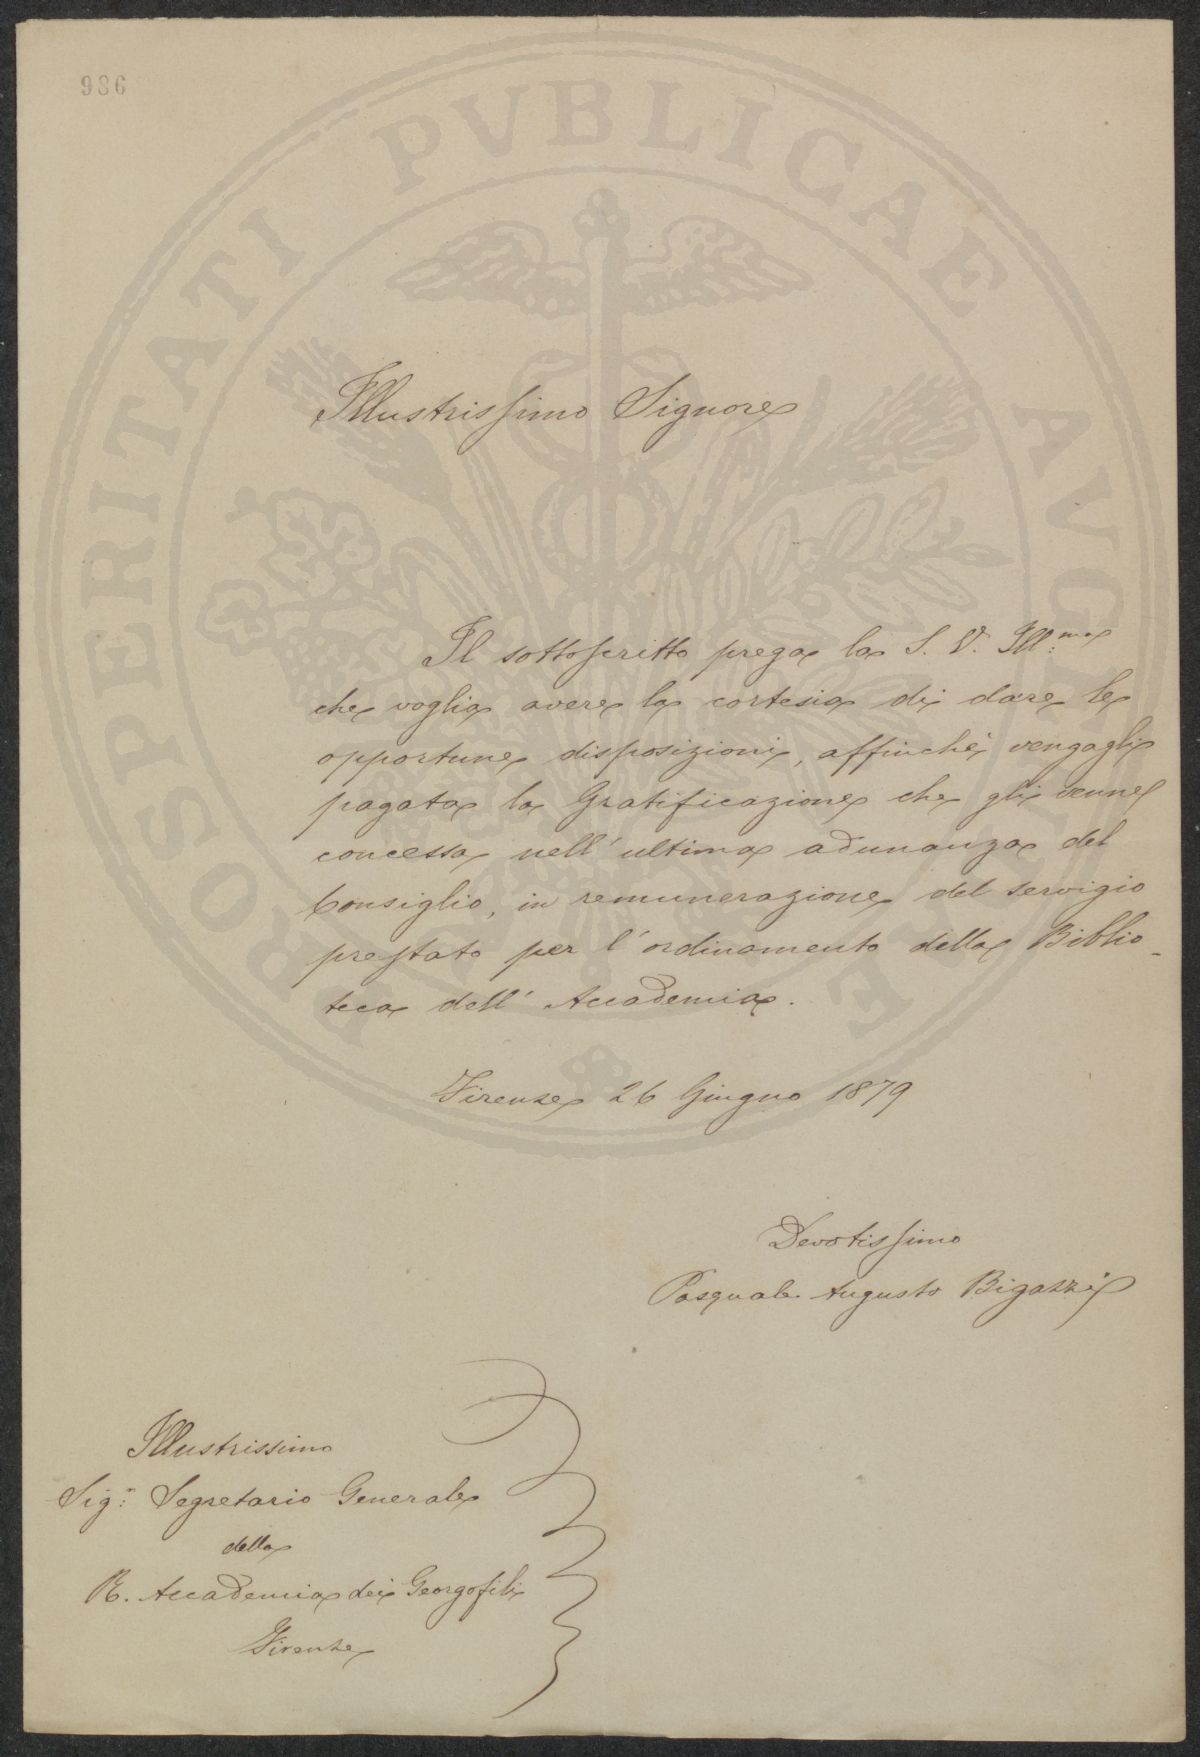 986
PROSPERITATI PVBLICAE AVGENDAE
Illustrissimo Signore
Il sottoscritto prega la S. V. Ill:ma
che voglia avere la cortesia di dare le
opportune disposizioni, affinchè vengagli
pagata la Gratificazione che gli venne
concessa nell'ultima adunanza del
Consiglio, in remunerazione del servigio
prestato per l'ordinamento della Biblio-
teca dell'Accademia.
Firenze 26 Giugno 1879
Devotissimo
Pasquale Augusto Bigazzi
Illustrissimo
Sig:r Segretario Generale
della
R. Accademia dei Georgofili
Firenze